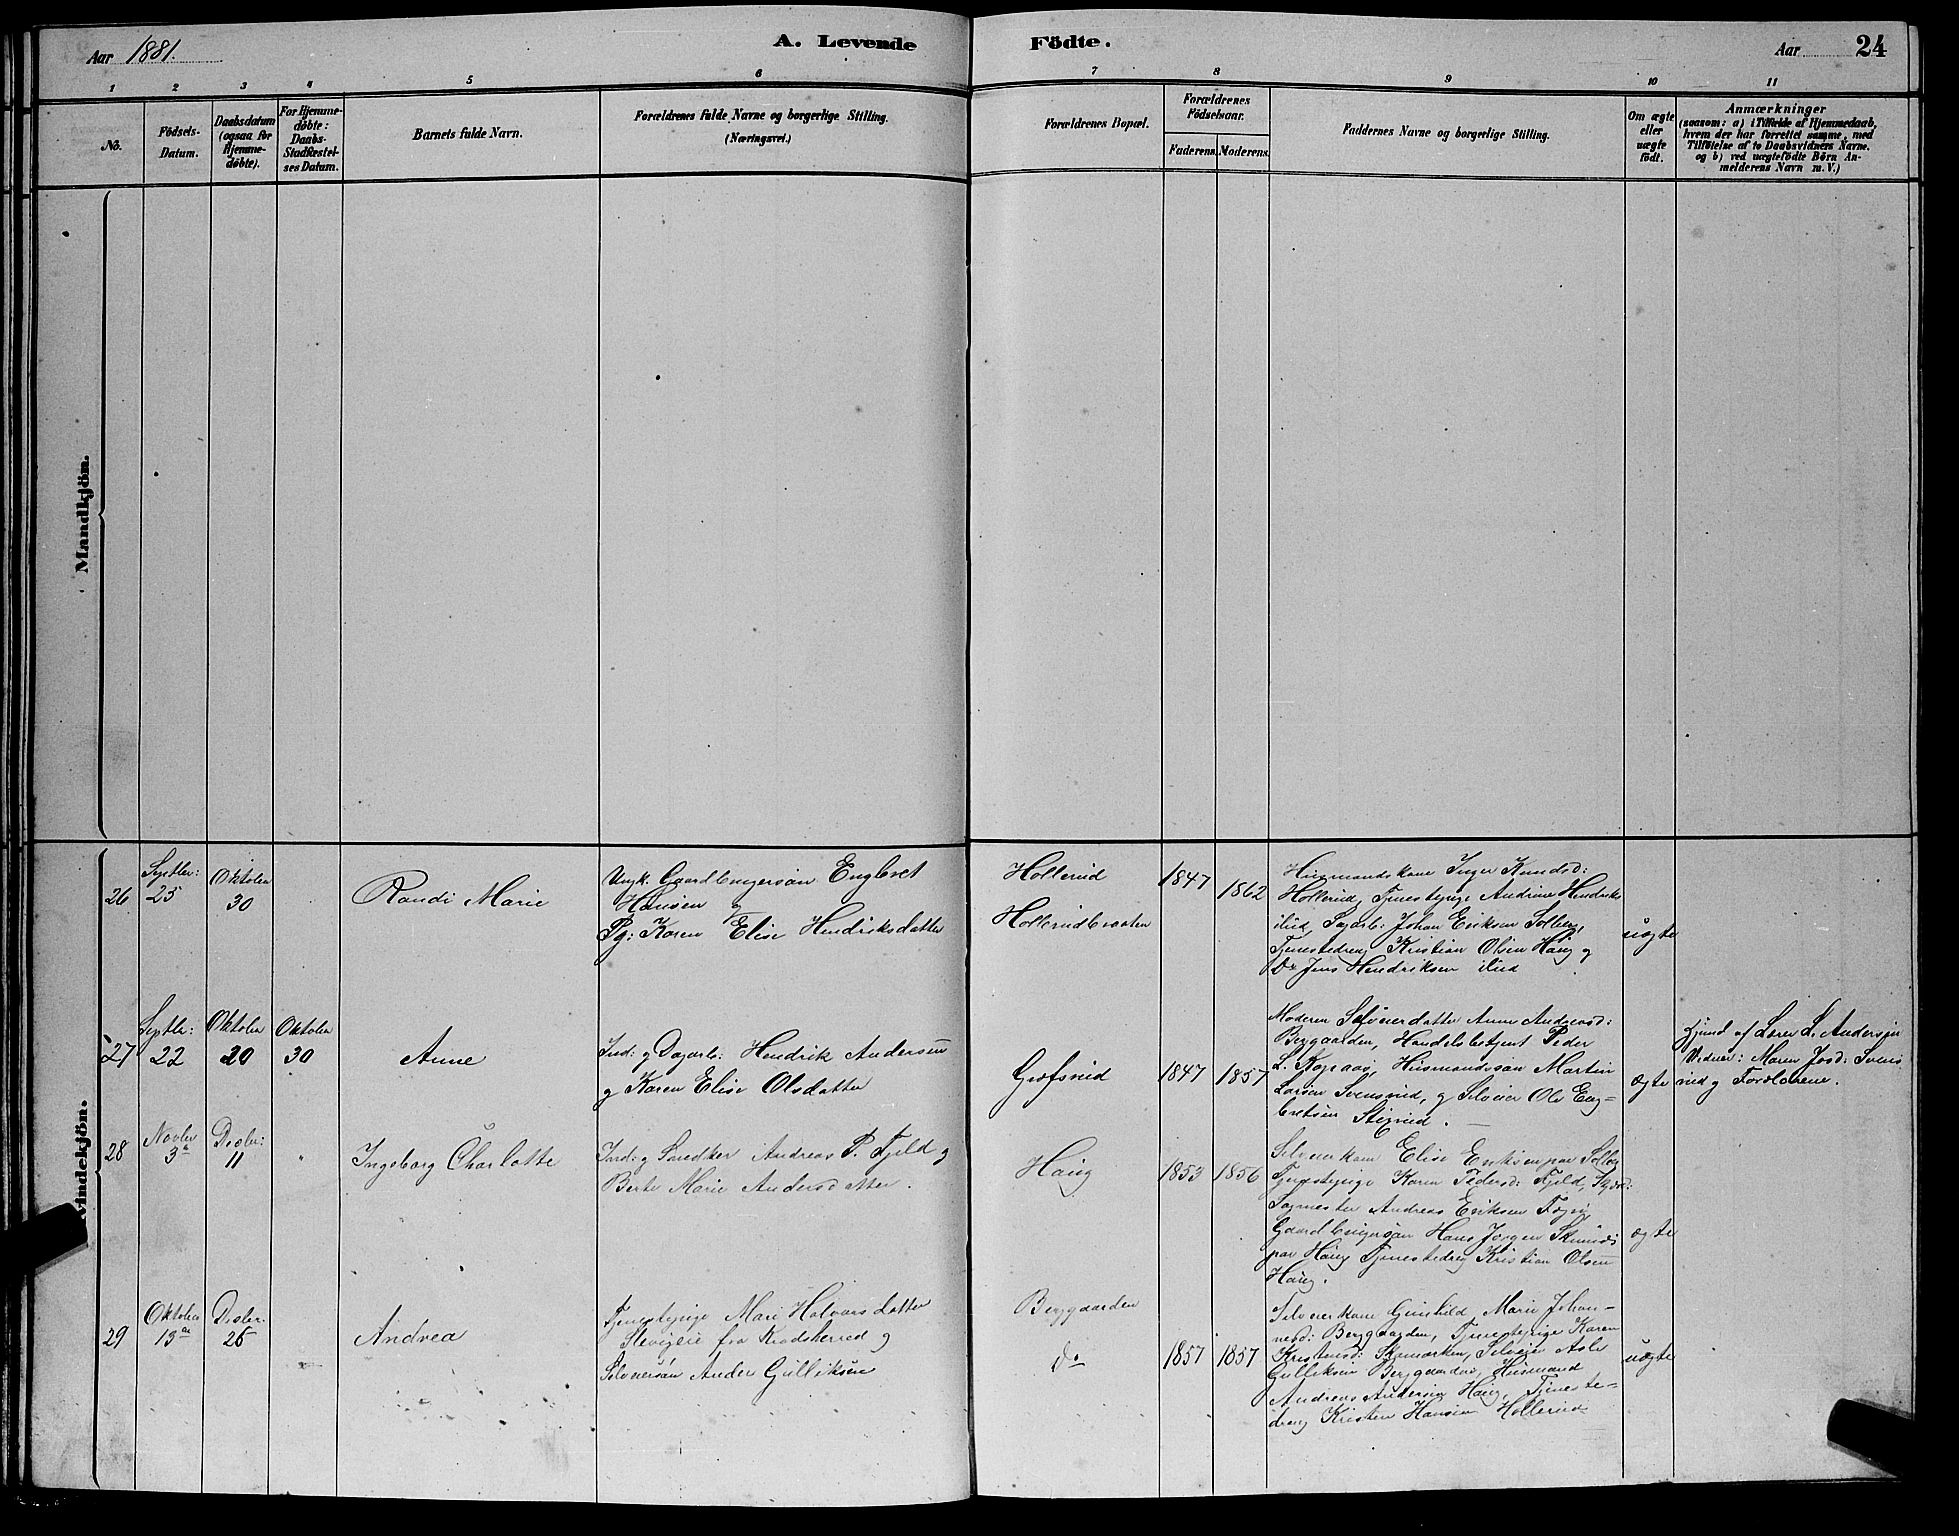 Aar 1881.
A. Levende Födte.
Aar 24
1 2 3 4 5 6 7 8 9 10 11
No.
Födsels-
Datum.
Daabsdatum
(ogsaa for
Hjemme-
döbte).
For Hjemme-
döbte:
Daabs-
Stadfæstel-
ses Datum.
Barnets fulde Navn.
Forældrenes fulde Navne og borgerlige Stilling.
(Næringsvei.)
Forældrenes Bopæl.
Forældrenes
Födselsaar.
Faderens. Moderens.
Faddernes Navne og borgerlige Stilling.
Om ægte
eller
uægte
födt.
Anmærkninger
(saasom: a) i Tilfælde af Hjemmedaab,
hvem der har forrettet samme, med
Tilföielse af to Daabsvidners Navne.
og b) ved uægtefödte Börn An-
melderens Navn m. V.)
Mandkjön.
Kvindekjön.
26
Septbr:
25
Oktober
30
Randi Marie
Ungk. Gaardbrugersön Engbret
Hansen og
Pg: Karen Elise Hendriksdatter
Hollerud
Hollerudbraaten
1847 1862
Husmandskone Inger Knudsd:
Hollerud, Tjenestepige Andrine Hendriks
ibid, Johan Eriksen Solberg,
Tjenestedreng Kristian Olsen Haug og
Do Jens Hendriksen ibid
uægte
27
Septbr:
22
Oktober
20
Oktober
30
Anne
Ind: og Dagarb: Hendrik Andersen
og Karen Elise Olsdatter
Grøfsrud
1847 1857
Moderen Selveierdatter Anne Andersd:
Berggarden, Handelsbetjent Peder
L. Kopaas, Husmandssøn Martin
Larsen Svensrud, og Selveier Ole Eng-
bretsen Stigrud.
Ægte
af L. Andersen
Vidner: Maren Svens
rud og Forældrene.
28
Novbr
3
Decbr:
11
Ingeborg Charlotte
Ind: og Snedker Andreas P. Fjeld og
Berte Marie Andersdatter.
Haug
1853 1856
Selveierkone Elise Eriksen Solberg
Tjenestepige Karen Pedersd: Fjeld,
Andreas Eriksen
Gaardbrugersøn Hans Jørgen
Haug Tjenestedreng Kristian Olsen
Haug.
ægte
29
Oktober
13
Decbr.
26
Andrea
Tjenestepige Mari Halvorsdatter
fra Krødsherred og
Selveiersøn Anders Gulliksen
Berggaarden
do
1857 1857
Selveierkone Gunhild Marie Johan-
nesd: Berggaarden, Tjenestepige Karen
Kristensd: Selveier Asle
Gulliksen Berggaarden, Husmand
Andreas Andersen Haug, Tjeneste-
dreng Kristen Hansen Hollerud
uægte